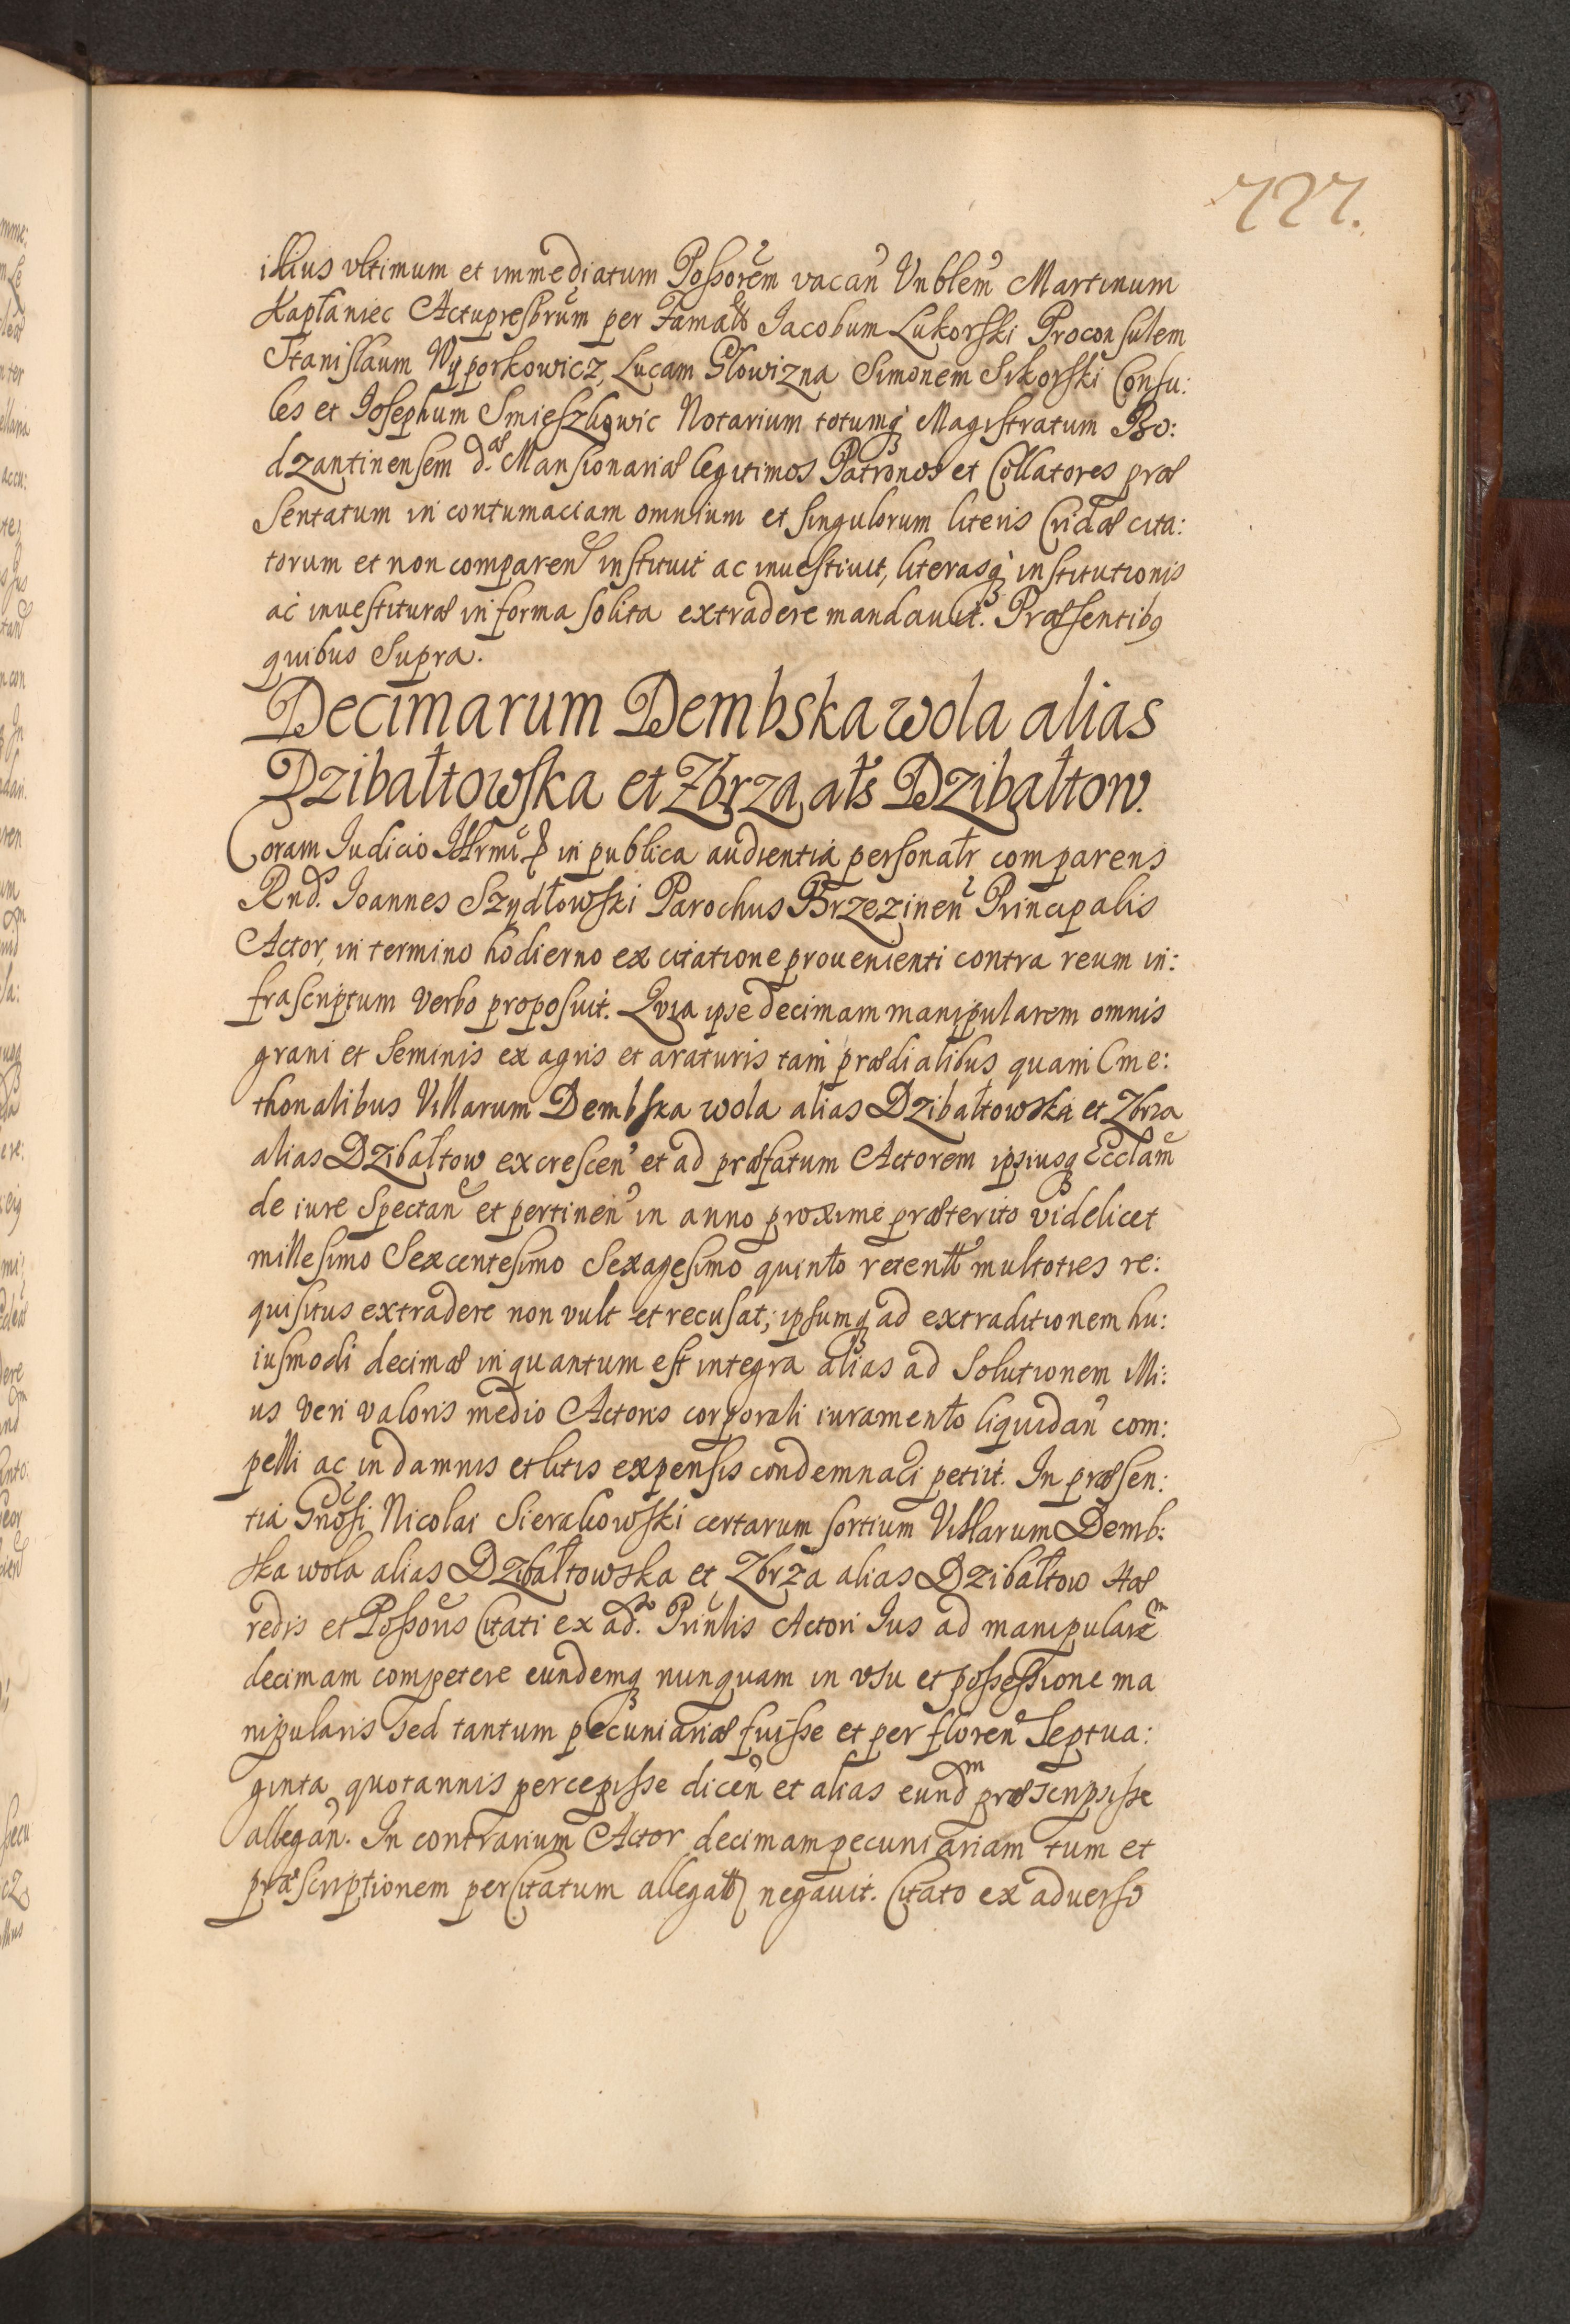 727.
illius vltimum et immediatum Possorem vacan Vnblem Martinum
Kapłaniec Actupresbrum per Famatt Iacobum Lukorski Proconsulem
Stanislaum Wyporkowicz, Lucam Głowizna Simonem Sikorski Consu:
les et Iosephum Smieszkowic Notarium totumq Magistratum Bo:
dzantinensem d.æ Mansionariæ legitimos Patronos et Collatores præ
sentatum in contumaciam omnium et singulorum literis Cridæ cita:
torum et non comparen instituit ac inuestiuit, literasq institutionis
ac inuestituræ in forma solita extradere mandauit. Præsentibq
quibus supra.
Decimarum Dembska wola alias
Dzibałtowska et Zbrza, ałs Dzibałtow.
Coram Iudicio Illrmi &c in publica audientia personatr comparens
Rnd. Ioannes Szydłowski Parochus Brzezinen Principalis
Actor, in termino hodierno ex citatione prouenienti contra reum in:
frascriptum verbo proposuit. Quia ipse decimam manipularem omnis
grani et seminis ex agris et araturis tam prædialibus quam Cme:
thonalibus Villarum Dembska wola alias Dzibałtowska et Zbrza
alias Dzibałtow excrescen et ad præfatum Actorem ipsiusq Ecclam
de iure spectan et pertinen in anno proxime præterito videlicet
millesimo sexcentesimo sexagesimo quinto retentt multoties re:
quisitus extradere non vult et recusat; ipsumq ad extraditionem hu:
iusmodi decimæ in quantum est integra alias ad solutionem illi:
us veri valoris medio Actoris corporali iuramento liquidan com:
pelli ac in damnis et litis expensis condemnaci petiit. In præsen:
tia Gnosi Nicolai Sierakowski certarum sortium Villarum Demb:
ska wola alias Dzibałtowska et Zbrza alias Dzibałtow Hæ
redis et Possoris Citati ex ad.so Prinlis Actori Ius ad manipulare m
decimam competere eundemq nunquam in vsu et possessione ma
nipularis sed tantum pecuniariæ fuisse et per floren septua:
ginta quotannis percepisse dicen et alias eund m præscripsisse
allegan. In contrarium Actor decimam pecuniariam tum et
præscriptionem per Citatum allegatt negauit. Citato ex aduerso